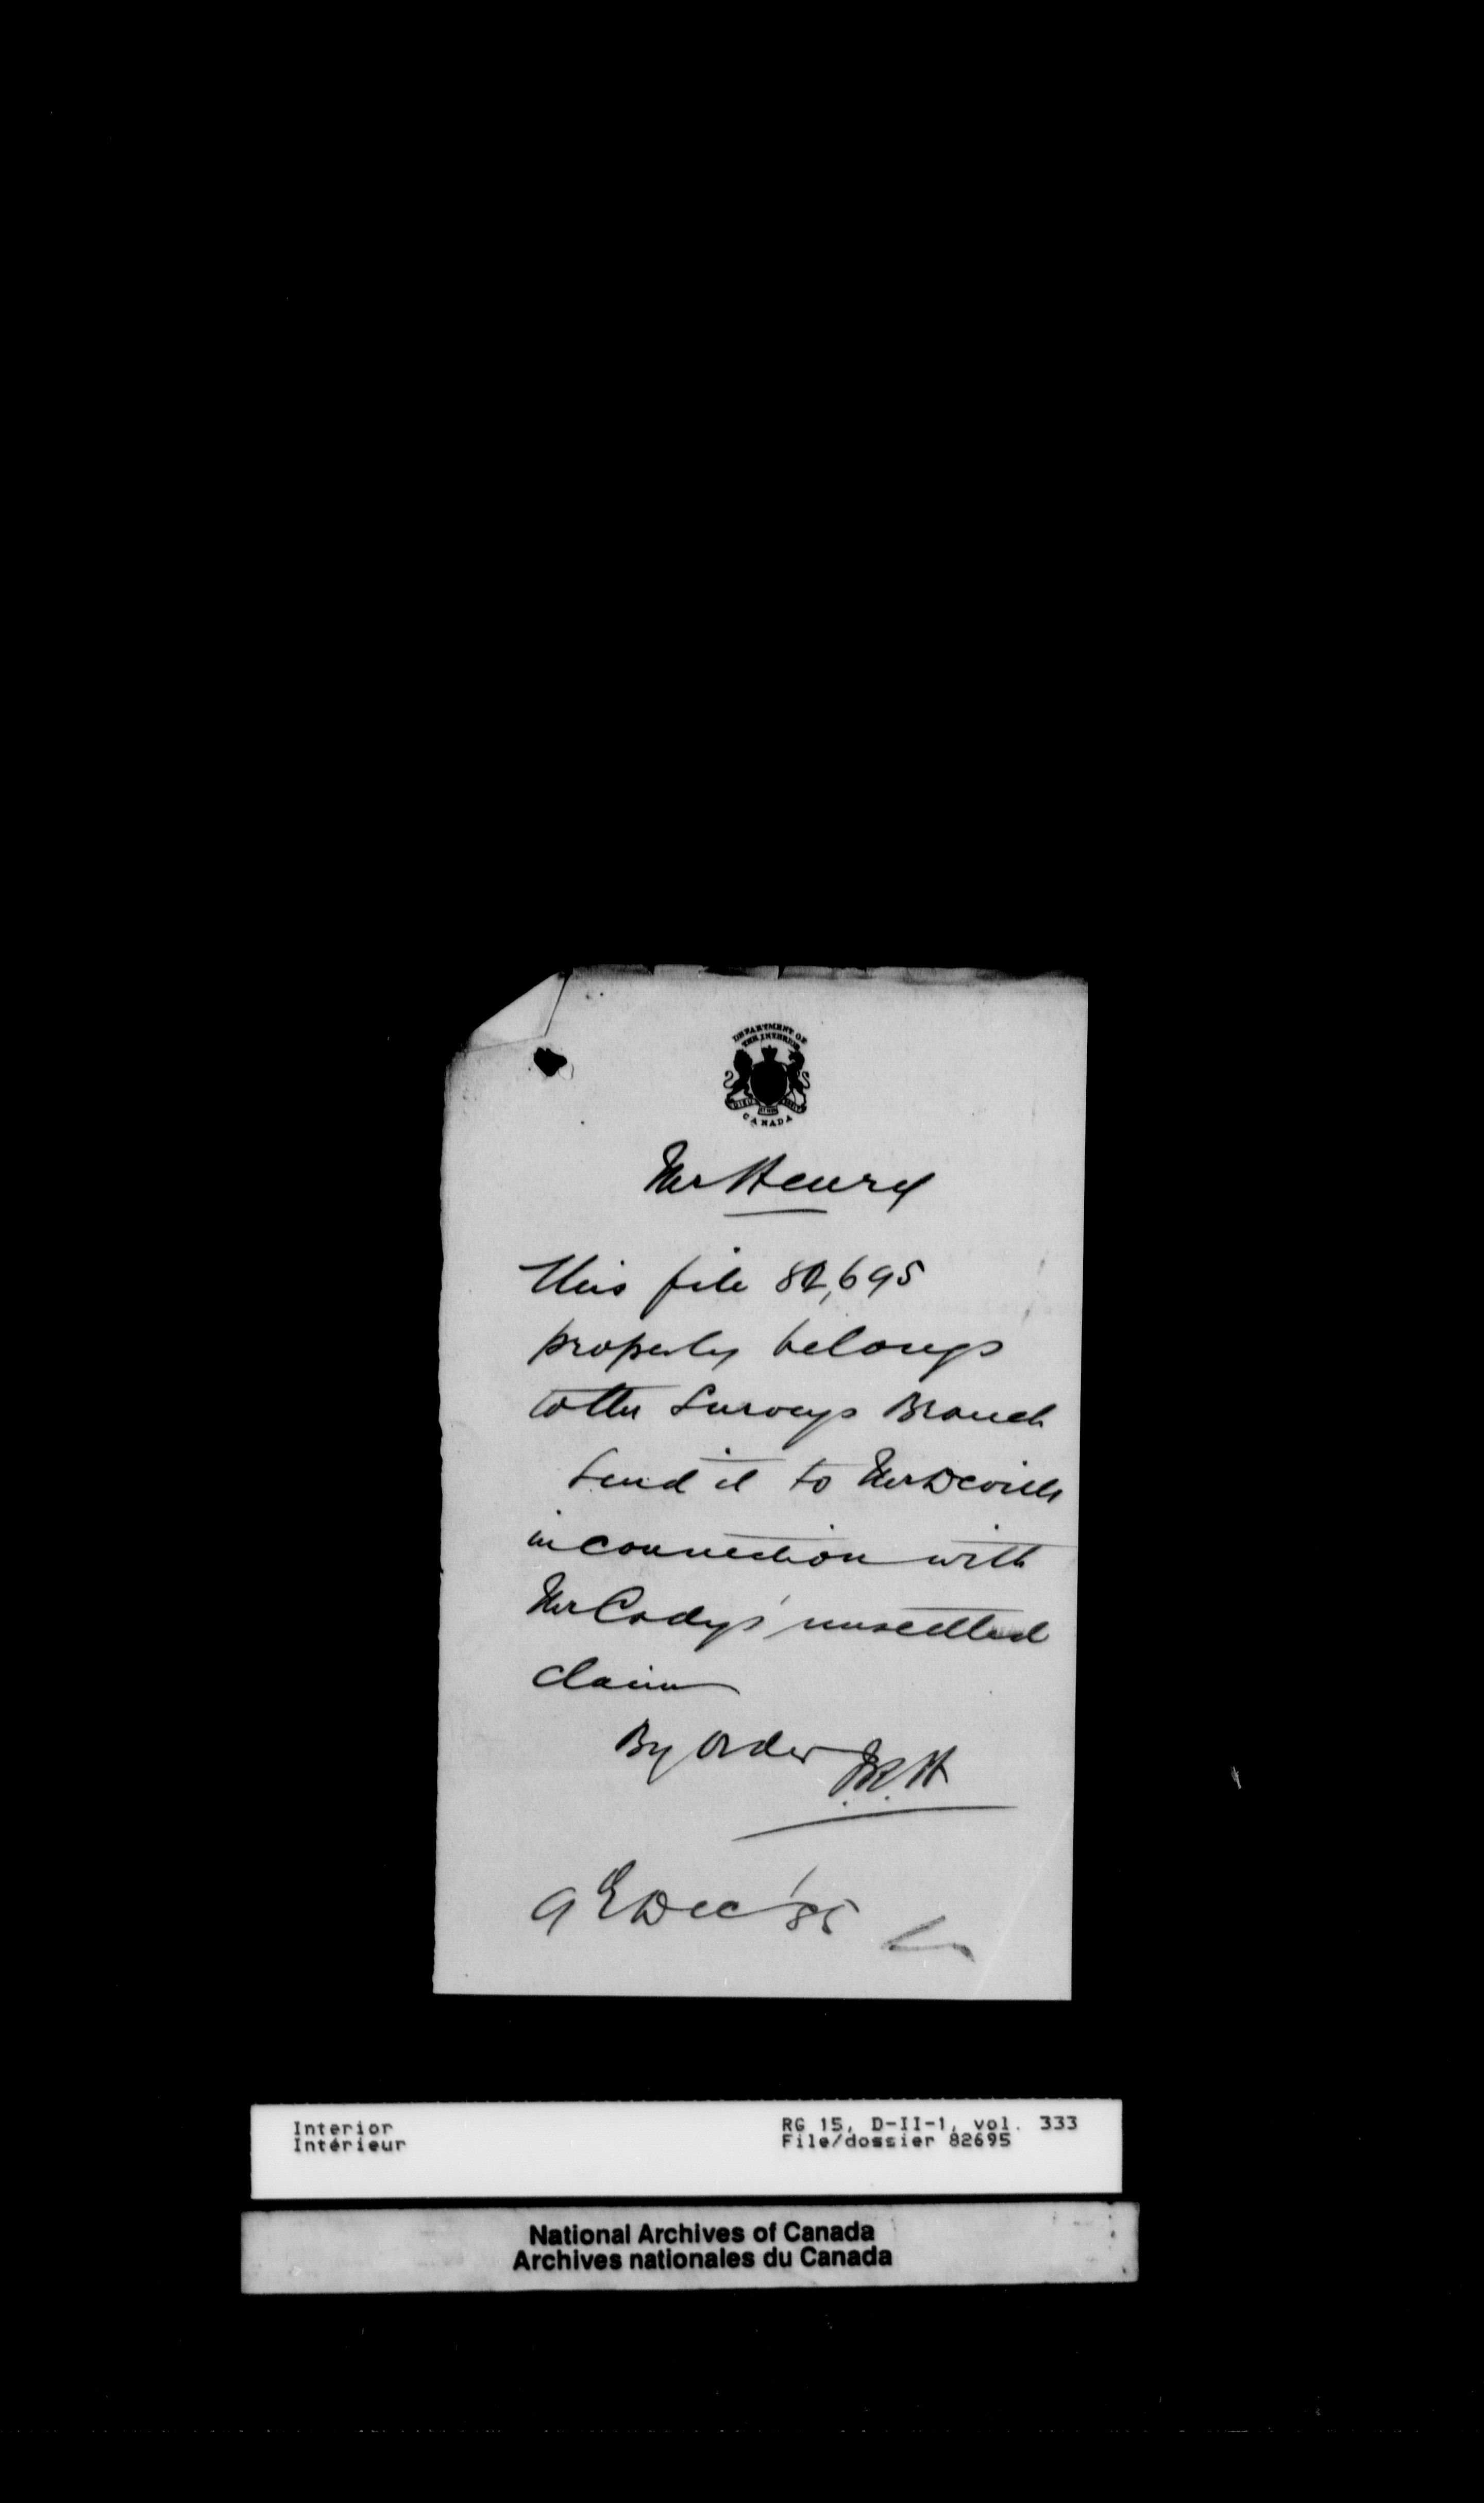 DEPARTMENT OF
THE INTERIOR
CANADA
Mr Henry
This file 82,695
properly belongs
to the Surveys Branch
Send it to Mr Deville
in connection with
Mr Cadys' unsettled
claim
By Order
9 Dec '85
Interior
Intérieur
RG 15, D-II-1, vol. 333
File/dossier 82695
National Archives of Canada
Archives nationales du Canada